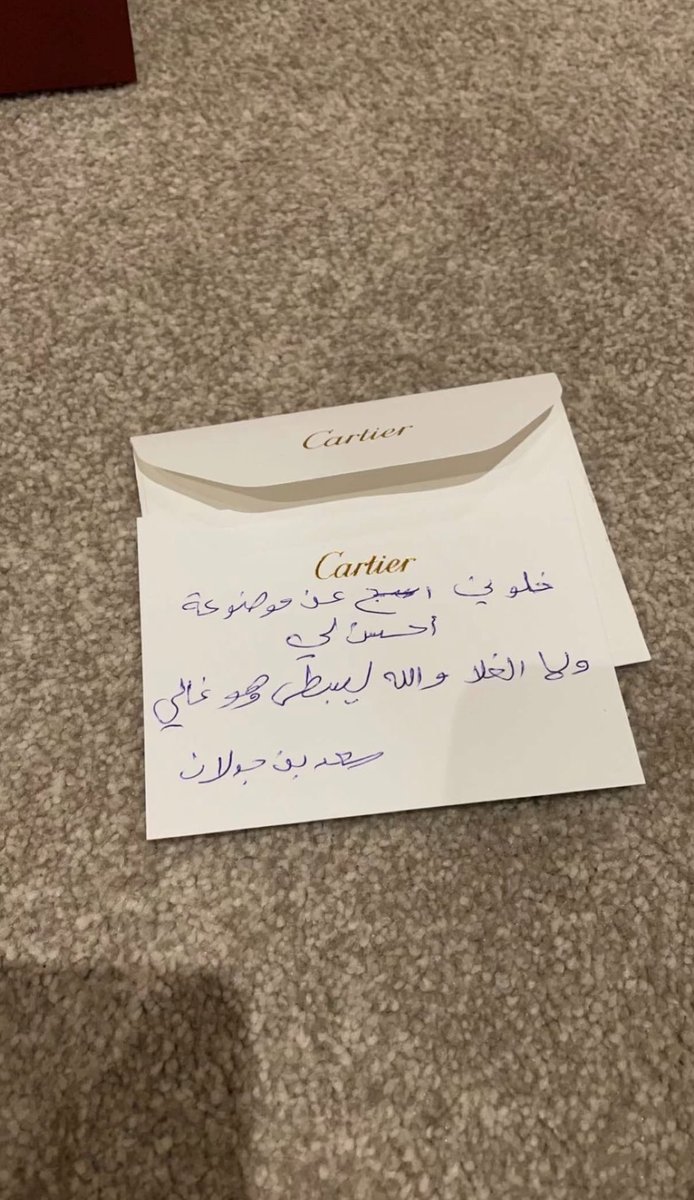 Cartier
Cartier
خلوني اسج عن موضوعة
أحسن لي
ولا الغلا والله ليبطي وهو غالي
سعد بن جدلان